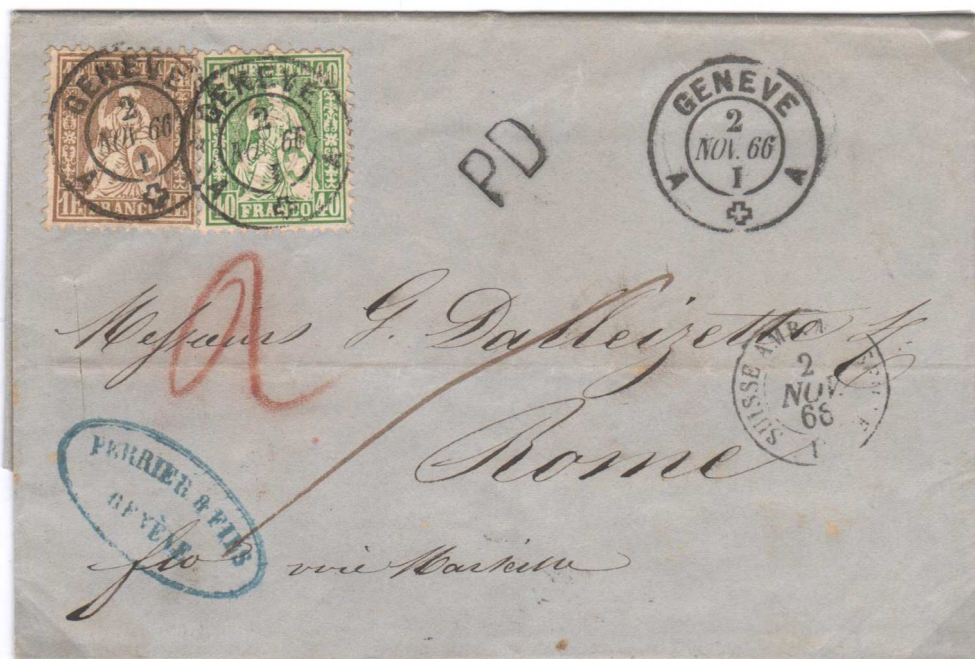 GENEVE
2
NOV. 66
I
A A
GENEVE
2
NOV. 66
I
A
1 FRANC 1
40 40
40 FRANCO 40
PD
GENEVE
2
NOV. 66
I
A A
2
Messieurs G. Dalleizette &
SUISSE AMB.
2
NOV.
66
Rome
PERRIER & FILS
GENÈVE
fco via Marseille